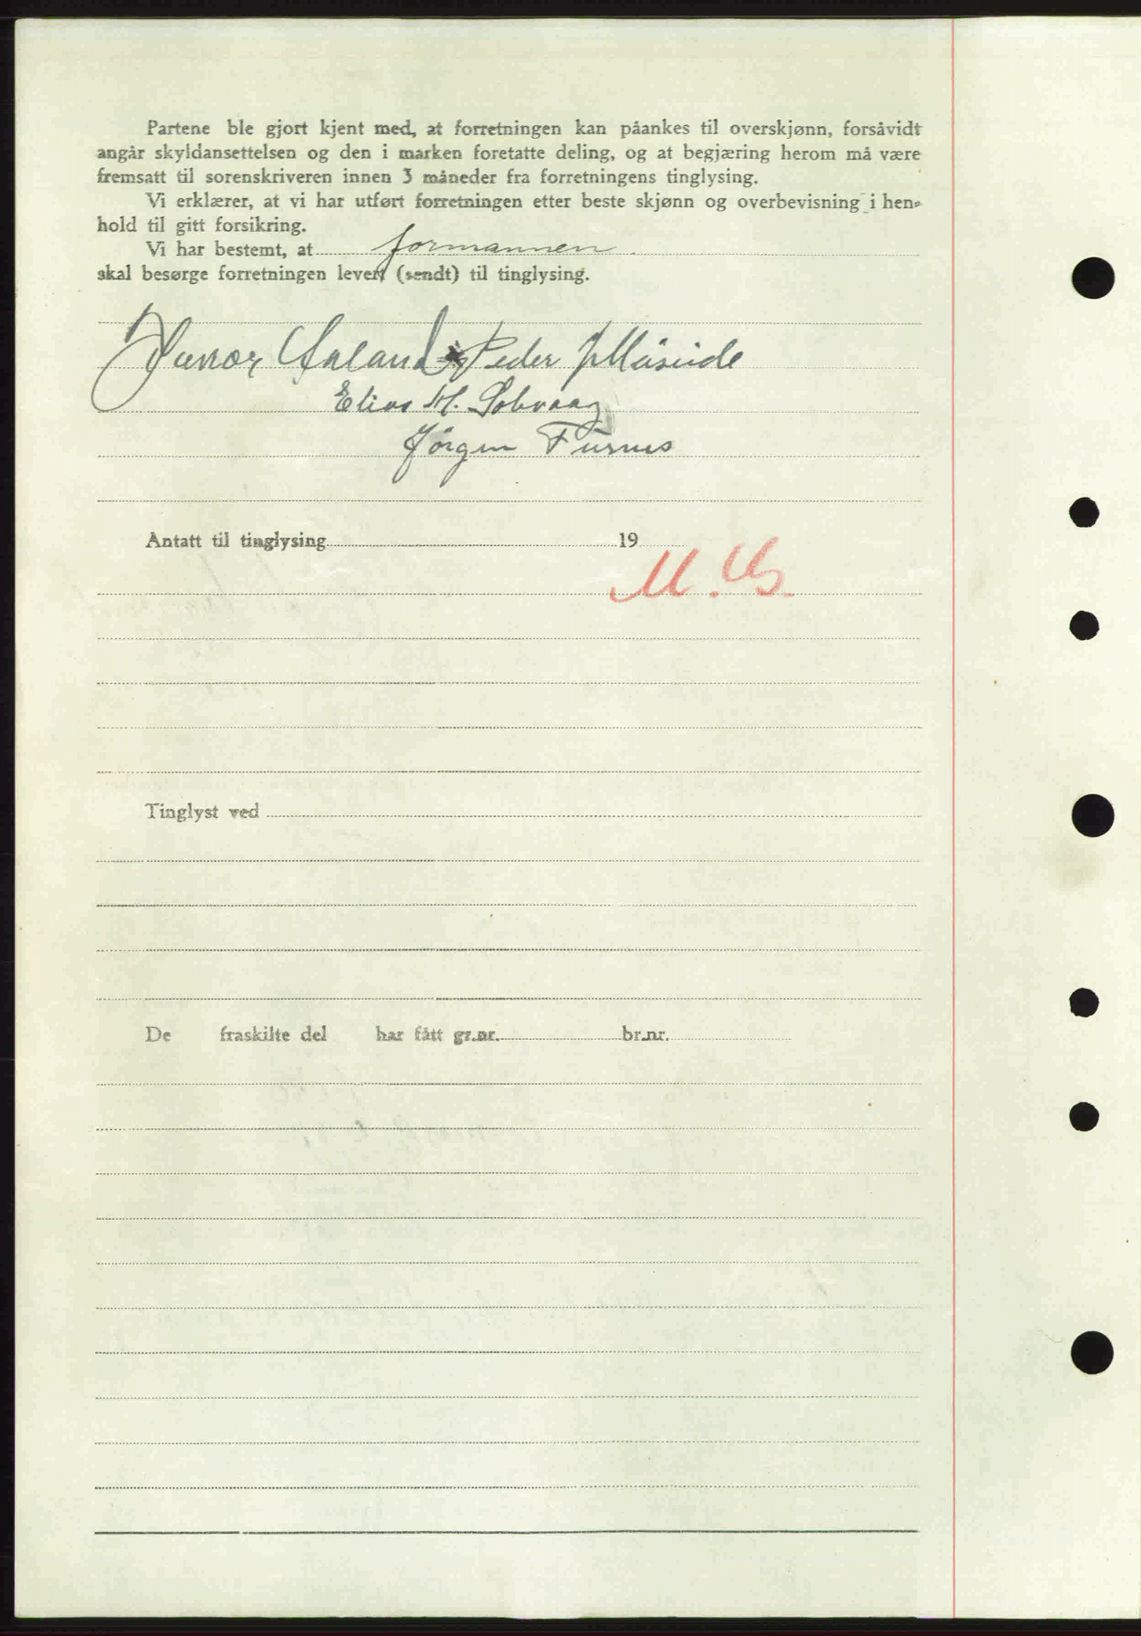 Partene ble gjort kjent med, at forretningen kan påankes til overskjønn, forsåvidt
angår skyldansettelsen og den i marken foretatte deling, og at begjæring herom må være
fremsatt til sorenskriveren innen 3 måneder fra forretningens tinglysing.
Vi erklærer, at vi har utført forretningen etter beste skjønn og overbevisning i hen-
hold til gitt forsikring.
Vi har bestemt, at formannen
skal besørge forretningen levert (sendt) til tinglysing.
Aaland Peder
Elias M. Solvaag
Jørgen Furnes
Antatt til tinglysing 19
Tinglyst ved
De fraskilte del har fått gr.nr. br.nr.